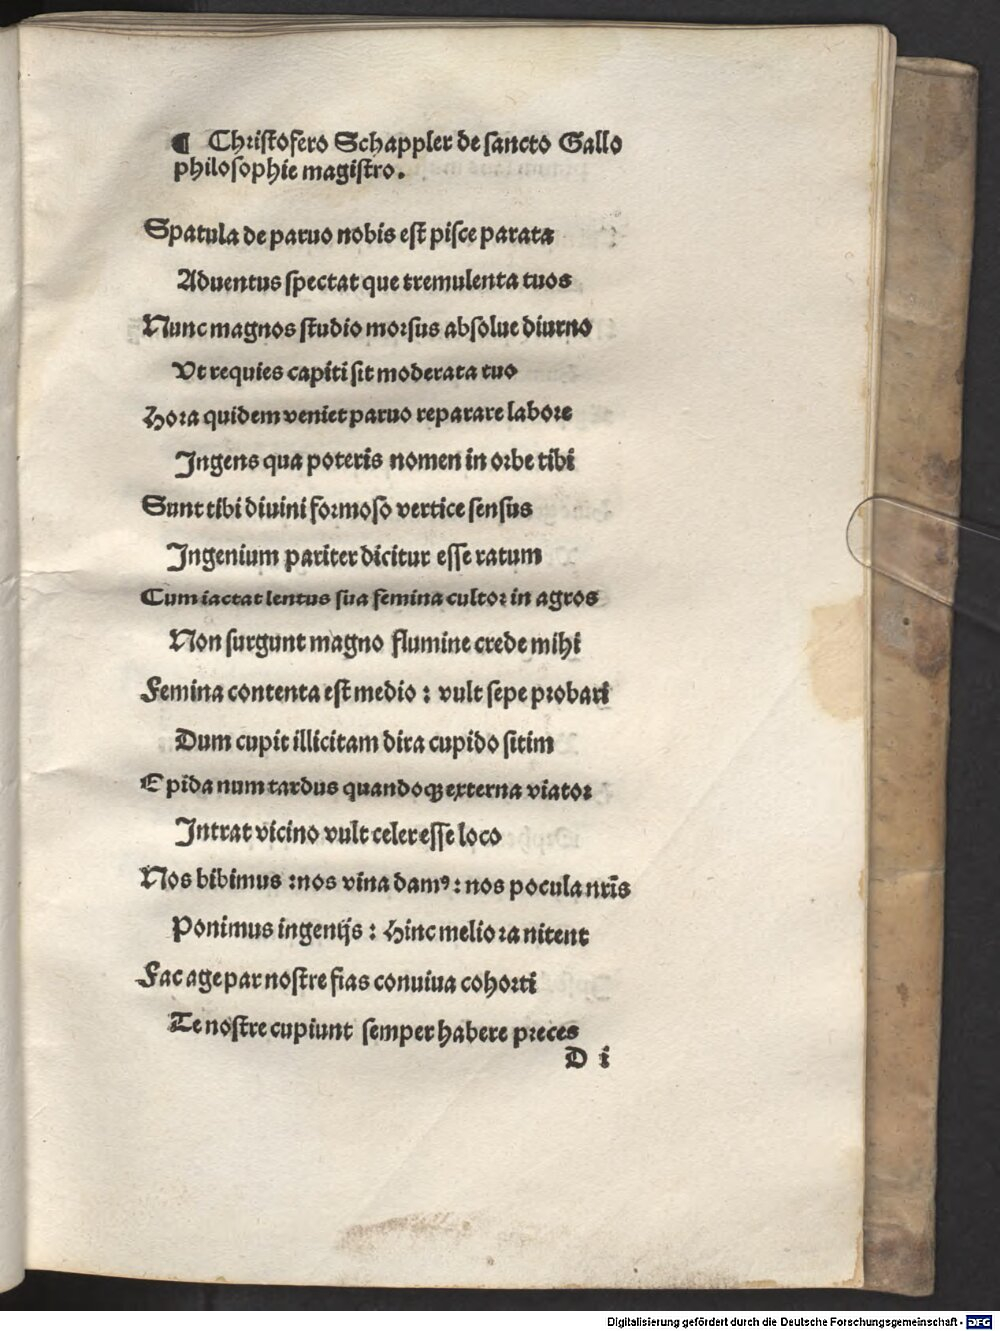 ¶ Chriſtofero Schappler de ſancto Gallo
philoſophie magiſtro.
Spatula de paruo nobis eſt piſce parata
Aduentus ſpectat que tremulenta tuos
Nunc magnos ſtudio morſus abſolue diurno
Vt requies capiti ſit moderata tuo
Hora quidem veniet paruo reparare labore
Ingens qua poteris nomen in orbe tibi
Sunt tibi diuini formoſo vertice ſenſus
Ingenium pariter dicitur eſſe ratum
Cum iactat lentus ſua ſemina cultor in agros
Non ſurgunt magno flumine crede mihi
Femina contenta eſt medio : vult ſepe probari
Dum cupit illicitam dira cupido ſitim
Epida num tardus quandoqꝫ externa viator
Intrat vicino vult celer eſſe loco
Nos bibimus : nos vina damꝰ : nos pocula nr̄is
Ponimus ingenijs : Hinc meliora nitent
Fac age par noſtre fias conuiua cohorti
Te noſtre cupiunt ſemper habere preces
D i
Digitalisierung gefördert durch die Deutsche Forschungsgemeinschaft - DFG